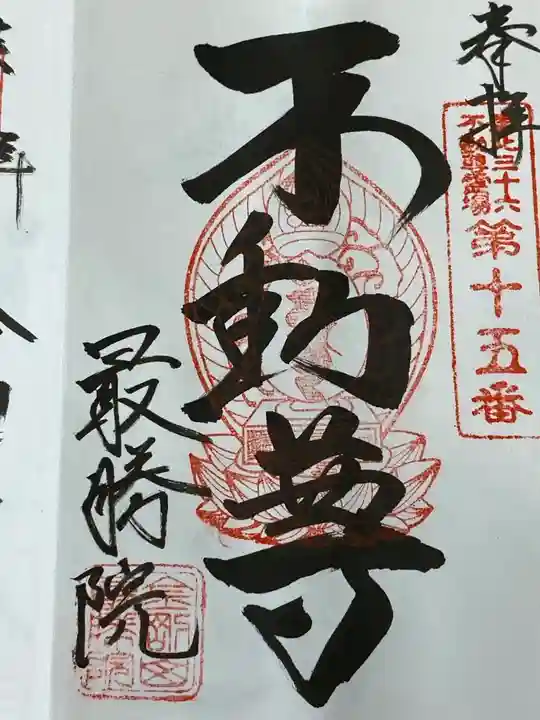 奉拝
東北三十六
不動尊霊場
第十五番
不動尊
最勝院